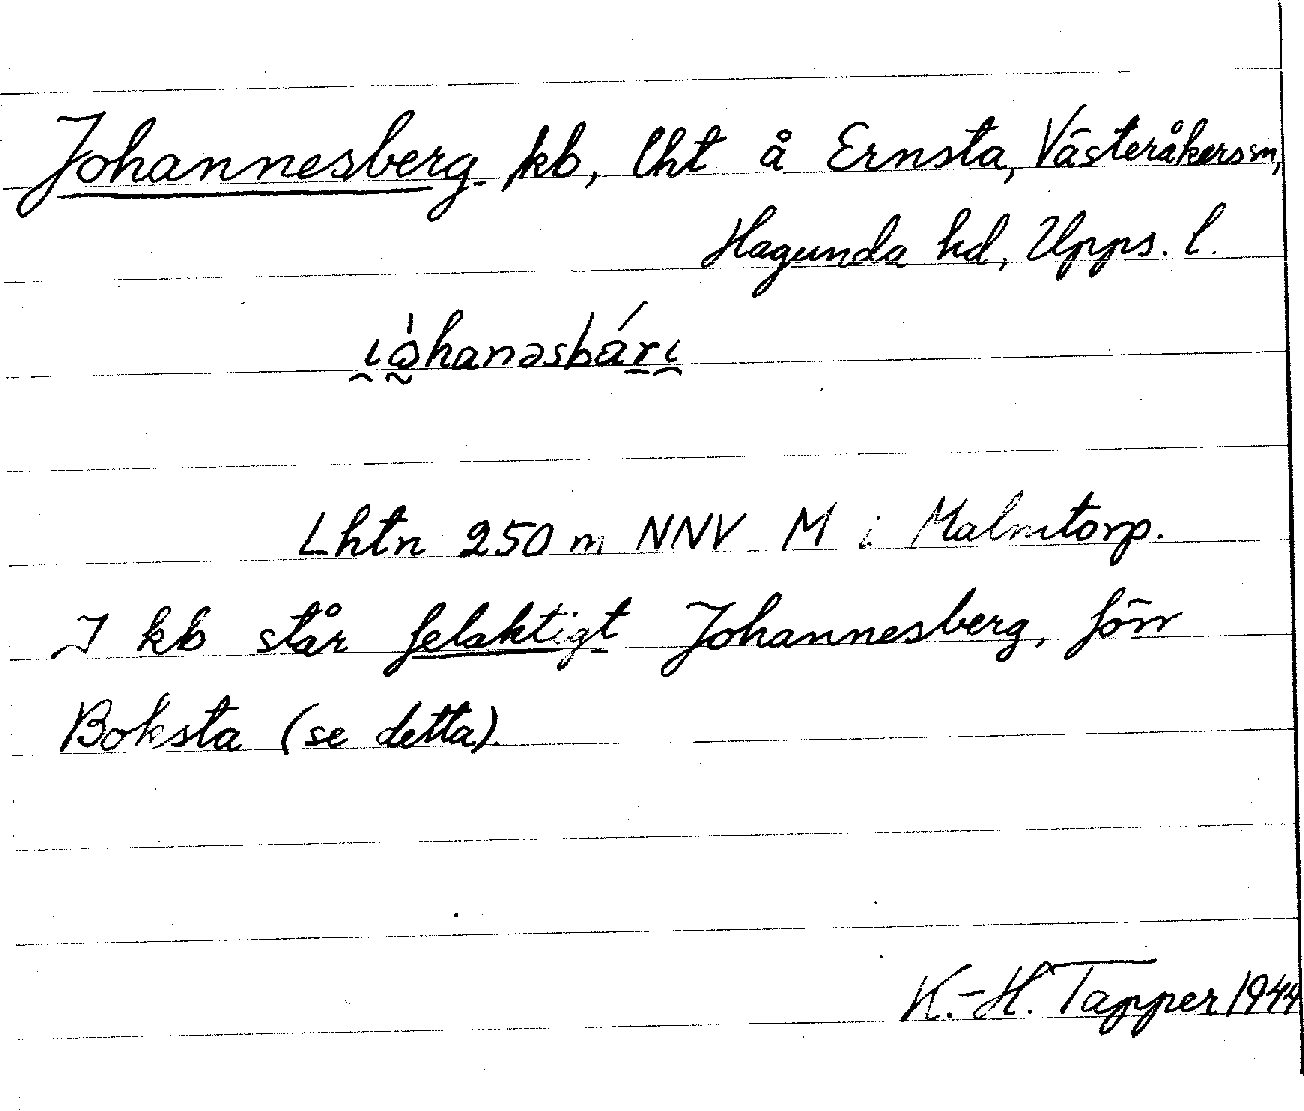 Johannesberg kb, lht å Ernsta, Västeråkers sn,
Hagunda hd, Upps. l.
ı̯ò̰hanəsbár̠ı̯
Lhtn 250 m NNV M i Malmtorp.
I kb står felaktigt Johannesberg, förr
Boksta (se detta).
K.-H. Tapper 1944